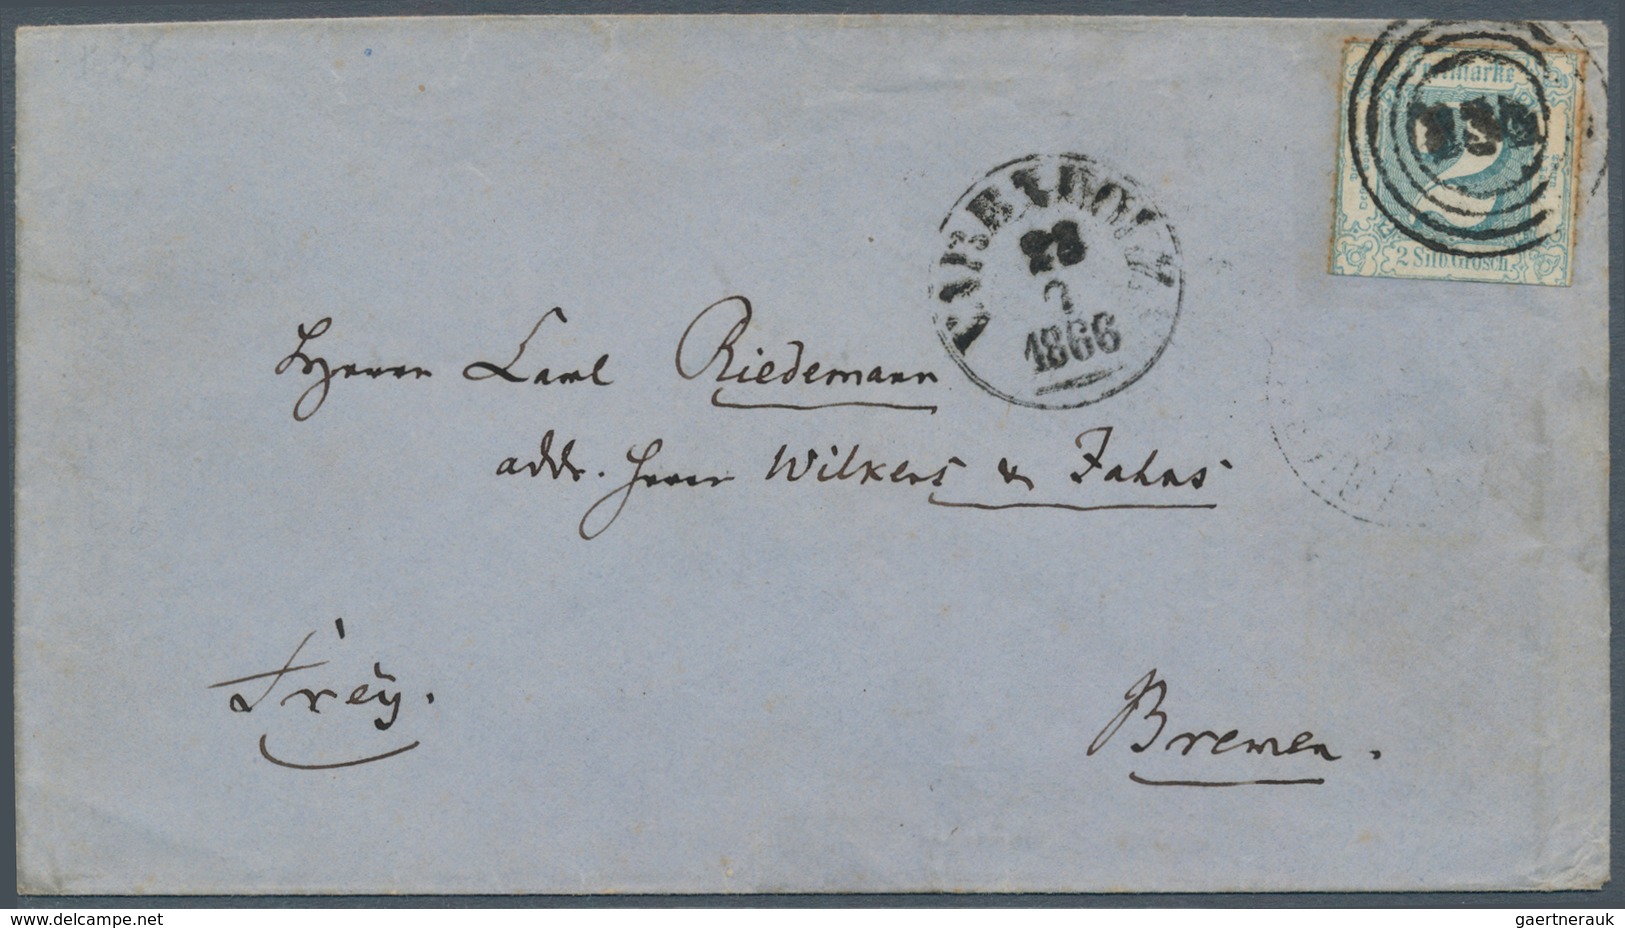 Postmarke
2 Silb. Grosch.
VARENHOLZ
23
7
1866
Herrn Carl Riedemann
addr. Herrn Wilkens & Jahns
Frey.
Bremen.
www.delcampe.net
gaertnerauk